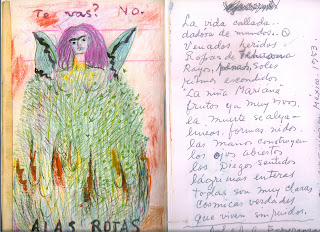 Te vas? No.
ALAS ROTAS
La vida callada..
dadora de mundos..
Venados heridos
Ropas de Tehuana
Rayos, penas, Soles
ritmos escondidos
"La niña Mariana"
frutos ya muy vivos.
la muerte se aleja –
lineas, formas, nidos.
las manos construyen
los ojos abiertos
los Diegos sentidos
lágrimas enteras
todas son muy claras
Cosmicas verdades
que viven sin ruidos.
MEXICO. 1953.
Esperanza